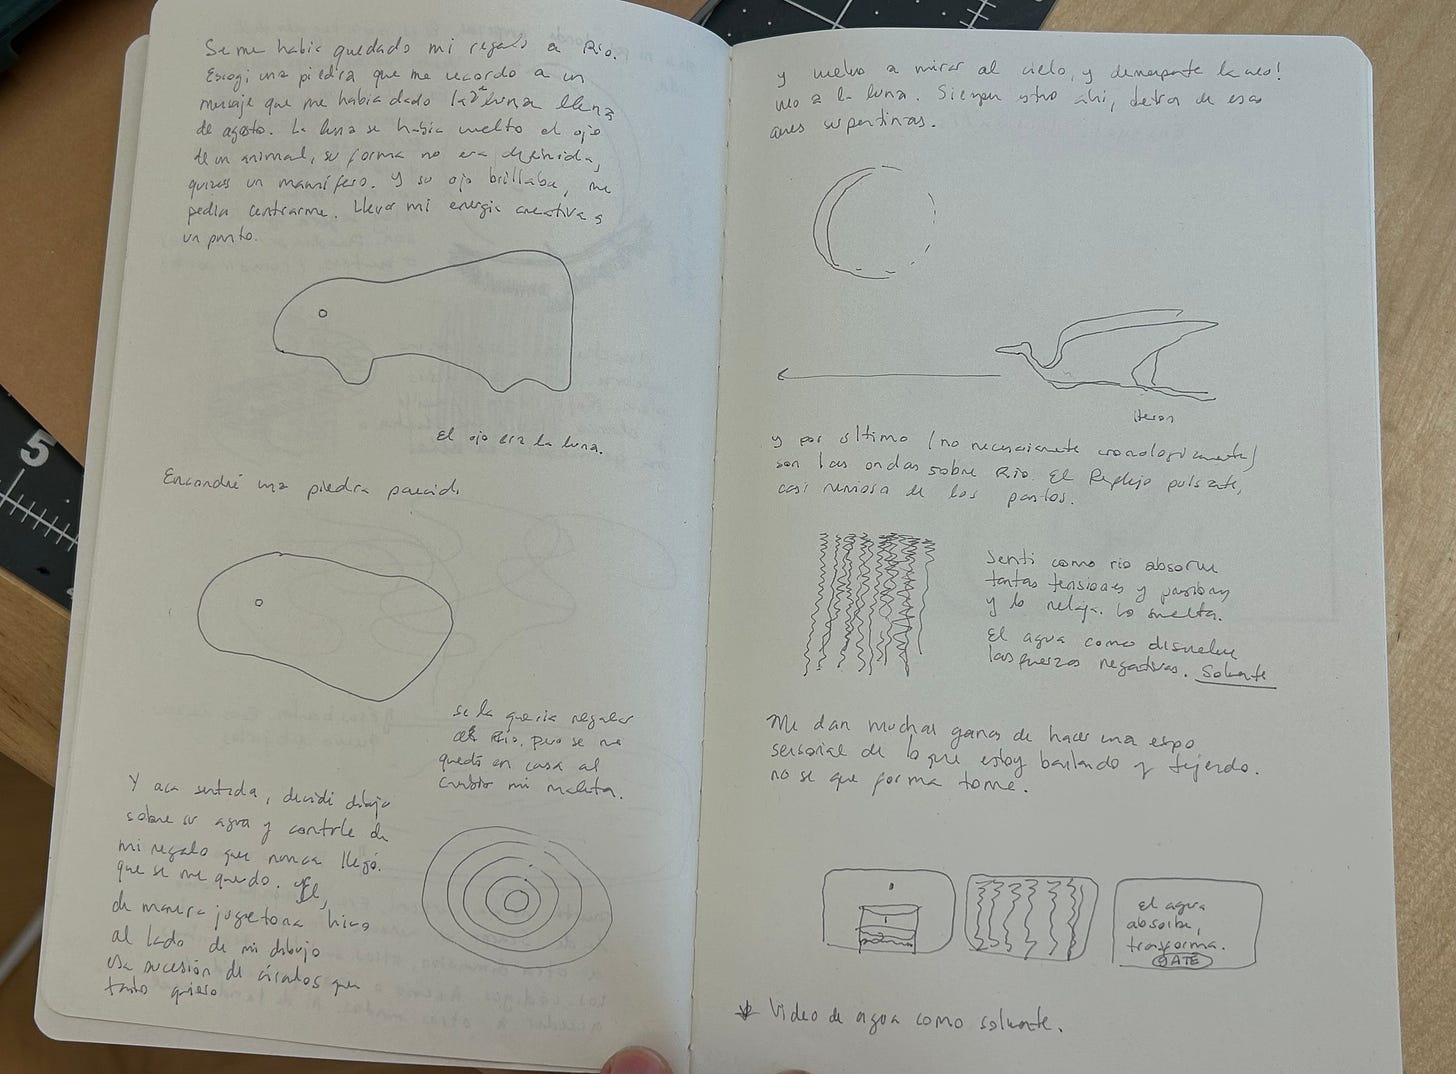 Se me había quedado mi regalo a Río.
Escogí una piedra que me recordo a un
mensaje que me habia dado la 2ª luna llena
de agosto. La luna se había vuelto el ojo
de un animal, su forma no era definida,
quizas un mamífero. Y su ojo brillaba, me
pedía centrarme. Llevar mi energía creativa a
un punto.
El ojo era la luna.
Encontré una piedra parecida
se la queria regalar
al Río, pero se me
quedó en casa al
cambiar mi maleta.
Y aca sentada, decidi dibujar
sobre su agua y contarle de
mi regalo que nunca llegó.
que se me quedo. Y él,
de manera juguetona hizo
al lado de mi dibujo
esa sucesión de círculos que
tanto quiero
y vuelvo a mirar al cielo, y derrepente la veo!
veo a la luna. Siempre estuvo ahi, detras de esas
aves serpentinas.
Heron
y por último (no necesariamente cronologicamente)
son las ondas sobre Río. El Reflejo pulsante,
casi nerviosa de los pastos.
Sentí como rio absorve
tantas tensiones y
y lo relaja. lo suelta.
El agua como disuelve
las fuerzas negativas. Solvente
Me dan muchas ganas de hacer una expo
sensorial de lo que estoy bailando y tejiendo.
no se que forma tome.
el agua
absorbe,
trasforma.
GATE
Video de agua como solvente.
5